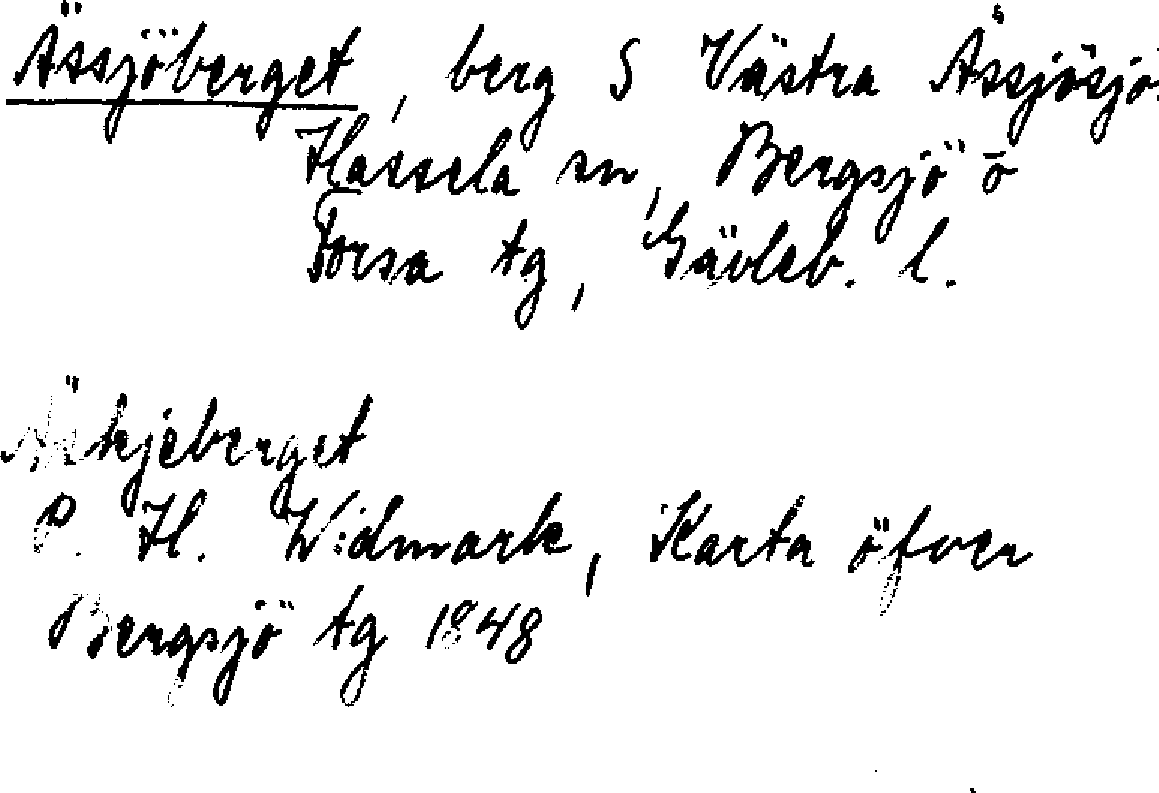 Ässjöberget, berg S Västra Åssjösjö.
Hassela sn, Bergsjö o
Forsa tg, Gävleb. l.
Äskjeberget
P. H. Widmark, Karta öfver
Bergsjö tg 1848